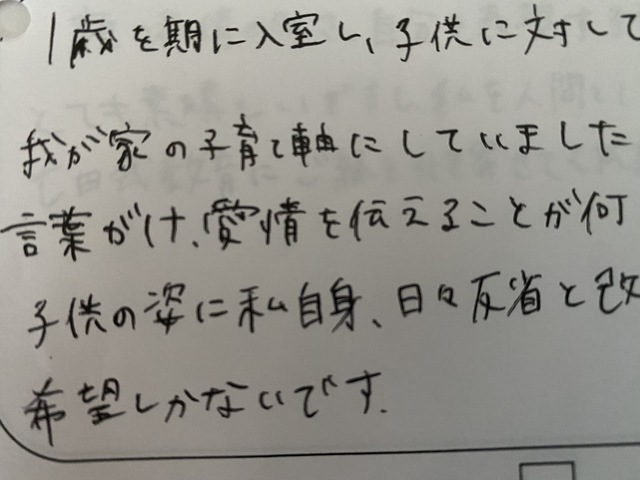 1歳を期に入室し、子供に対して
我が家の子育て軸にしていました
言葉がけ、愛情を伝えることが何
子供の姿に私自身、日々反省と改
希望しかないです.